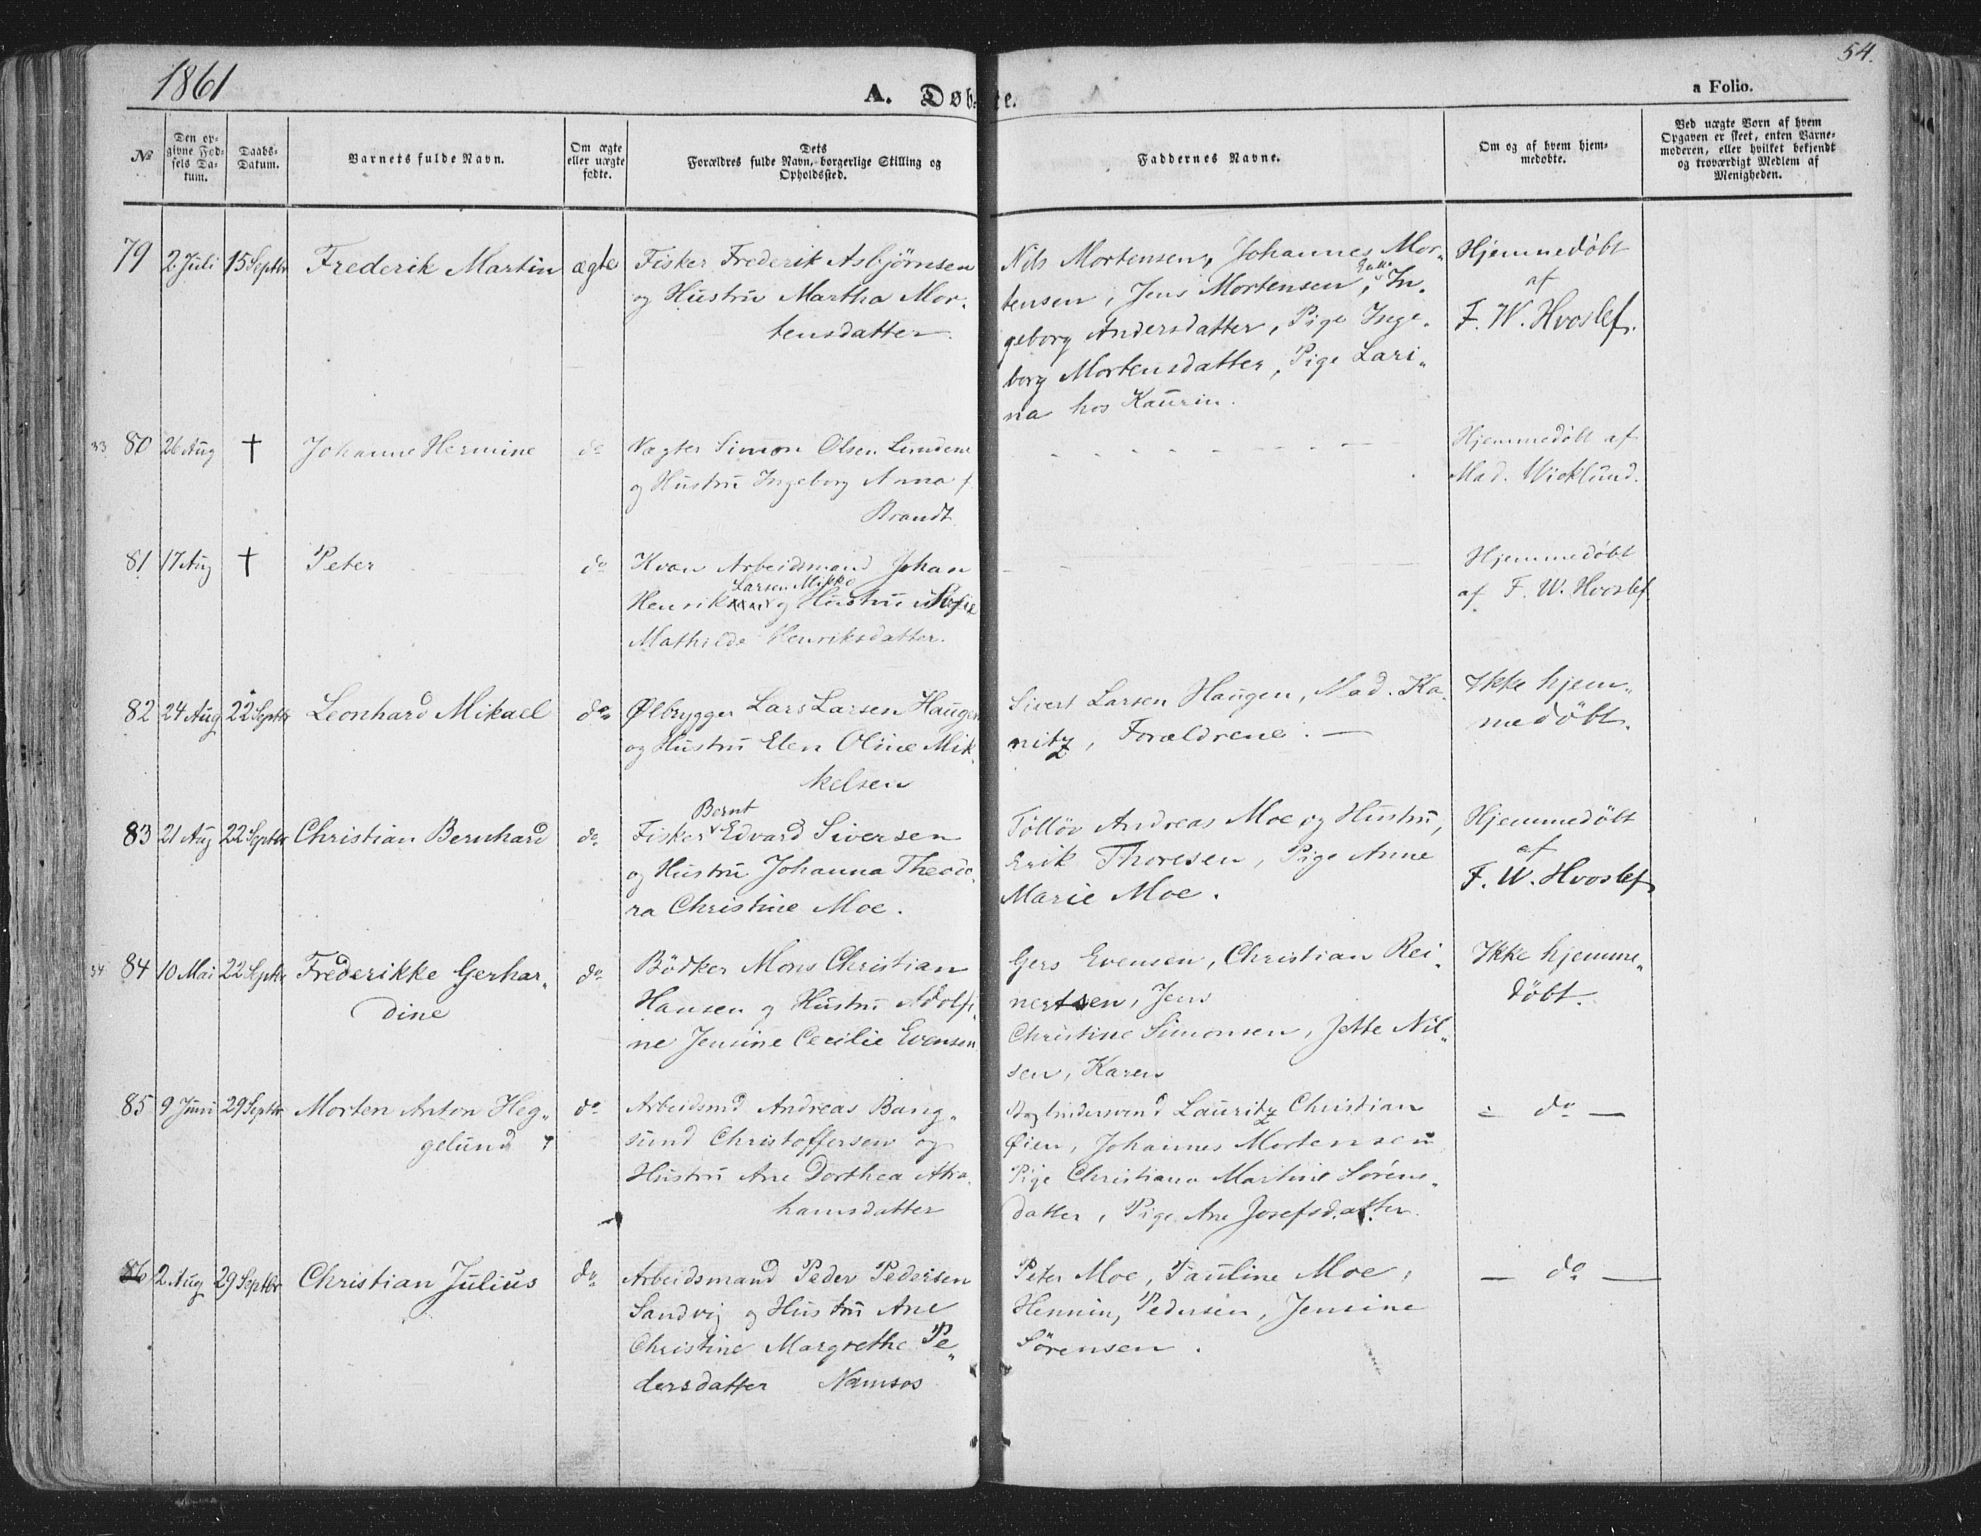 1861
A. Døbte.
54.
a Folio.
No
Den opgivne Fødsels Datum.
Daabs-Datum.
Barnets fulde Navn.
Om ægte eller uægte fødte.
Dets Forældres fulde Navn, borgerlige Stilling og Opholdssted.
Faddernes Navne.
Om og af hvem hjemmedøbte.
Ved uægte Børn af hvem Opgaven er skeet, enten Barnemoderen, eller hvilket bekjendt og troværdigt Medlem af Menigheden.
79 2 Juli 15 Septbr Frederik Martin ægte
Fisker Frederik Asbjörnsen
og Hustru Martha Mor-
tensdatter.
Nils Mortensen, Johannes Mor-
tensen, Jens Mortensen, In-
geborg Andersdatter, Pige Inge-
borg Mortensdatter, Pige Lari-
na hos Kaurin.
Hjemmedöbt
af
F. W. Hvoslef.
33 80 26 Aug † Johanne Hermine do
Vægter Simon Olsen Lundene
og Hustru Ingeborg Anna f.
Brandt
Hjemmedöbt af
Mad. Wicklund.
81 17 Aug † Peter do
Kvæn Arbeidsmand Johan
Larsen Mikko
Henrik og Hustru Sofie
Mathilde Henriksdatter.
Hjemmedöbt
af F. W. Hvoslef
82 24 Aug 22 Septbr Leonhard Mikael do
Ølbrygger Lars Larsen Haugen
og Hustru Elen Oline Mik-
kelsen
Sivert Larsen Haugen, Mad. Ka-
nitz, Forældrene. —
Ikke hjem-
medöbt.
83 21 Aug 22 Septbr Christian Bernhard do
Bernt
Fisker Edvard Siversen
og Hustru Johanna Theodo-
ra Christine Moe.
Andreas Moe og Hustru,
Erik Thoresen, Pige Anne
Marie Moe.
Hjemmedöbt
af
F. W. Hvoslef
34 84 10 Mai 22 Septbr Frederikke Gerhar-
dine
do
Bödker Mons Christian
Hansen og Hustru Adolfi-
ne Jensine Cecilie Evensen
Gers Evensen, Christian Rei-
nertsen, Jens
Christine Simonsen, Jette Nil-
sen, Karen
Ikke hjemme-
döbt.
85 9 Juni 29 Septbr Morten Anton Heg-
gelund
do
Arbeidsmd Andreas Bang-
sund Christoffersen og
Hustru Ane Dorthea Abra-
hamsdatter
Bogbindersvend Lauritz Christian
Øien, Johannes Mortensen
Pige Christiana Martine Sörens-
datter, Pige Ane Josefsdatter.
— do —
86 2 Aug 29 Septbr Christian Julius do
Arbeidsmand Peder Pedersen
Sandvig og Hustru Ane
Christine Margrethe Pe-
dersdatter Namsos
Peter Moe, Pauline Moe,
Henning Pedersen, Jensine
Sörensen.
— do —